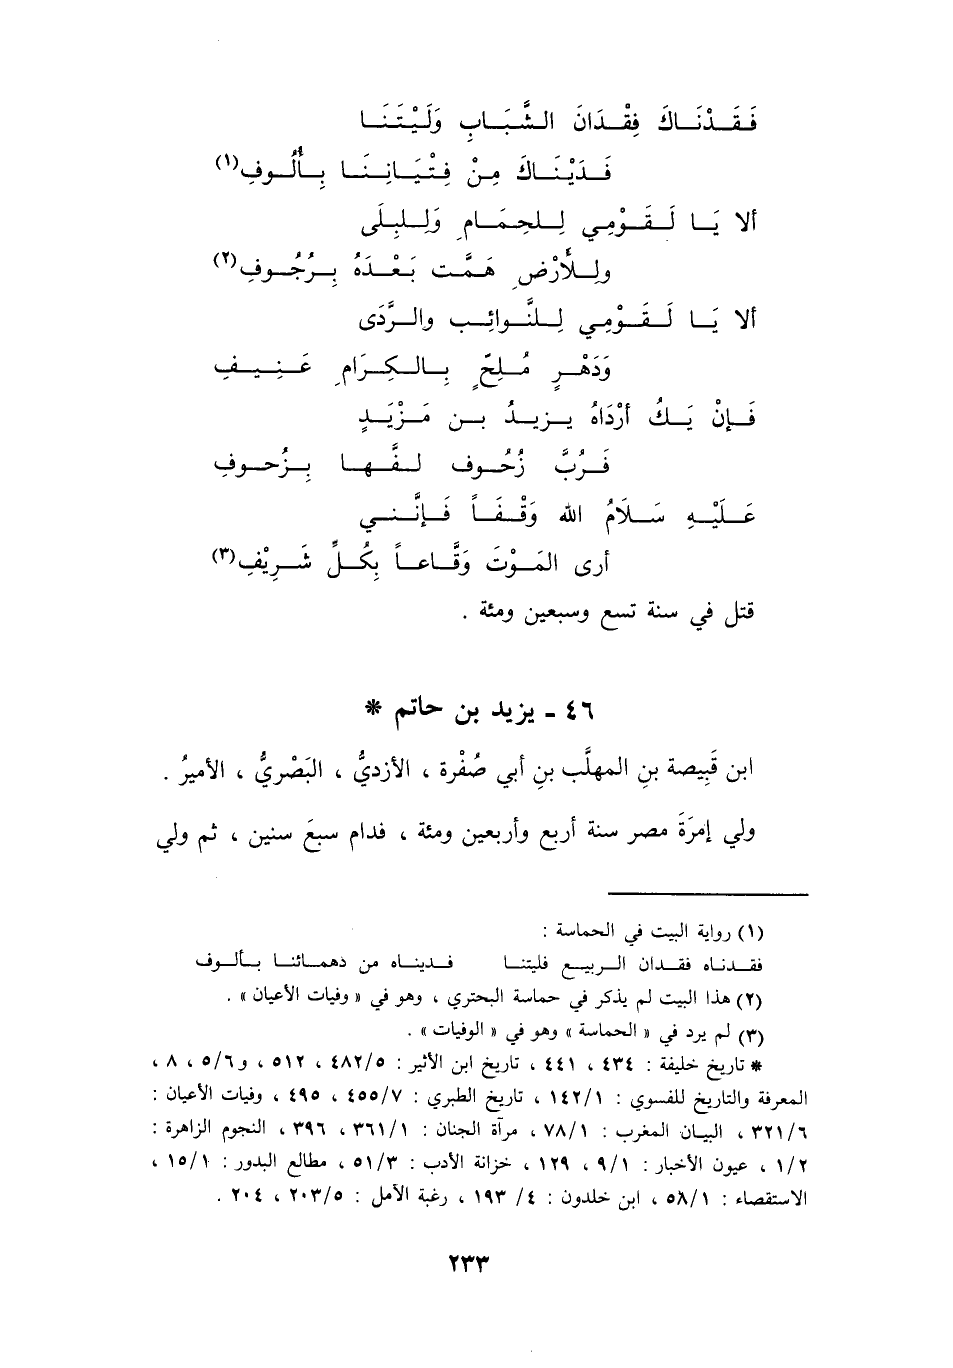 فَقَدْنَاكَ فِقْدَانَ الشَّبَابِ وَلَيْتَنَا
فَدَيْنَاكَ مِنْ فِتْيَانِنَا بِأُلُوفِ(١)
ألا يَا لَقَوْمِي لِلحِمَامِ وَلِلبِلَى
ولِلأَرْضِ هَمَّت بَعْدَهُ بِرُجُوفِ(٢)
ألا يَا لَقَوْمِي لِلنَّوائِبِ والرَّدَى
وَدَهْرٍ مُلِحٍّ بِالكِرَامِ عَنِيفِ
فَإنْ يَكُ أرْدَاهُ يزيدُ بن مَزْيَدٍ
فَرُبَّ زُحُوف لفَّها بِزُحوفِ
عَلَيْهِ سَلَامُ الله وَقْفَاً فَإنَّني
أرى المَوْتَ وَقَّاعاً بِكُلِّ شَرِيْفِ(٣)
قتل في سنة تسع وسبعين ومئة .
٤٦ - يزيد بن حاتم *
ابن قَبِيصة بنِ المهلَّب بنِ أبي صُفْرة ، الأزديُّ ، البَصْريُّ ، الأميرُ .
ولي إمرَةَ مصر سنة أربع وأربعين ومئة ، فدام سبعَ سنين ، ثم ولي
(١) رواية البيت في الحماسة :
فقدناه فقدان الربيع فليتنا فديناه من دهمائنا بألوف
(٢) هذا البيت لم يذكر في حماسة البحتري ، وهو في « وفيات الأعيان » .
(٣) لم يرد في « الحماسة » وهو في « الوفيات » .
* تاريخ خليفة : ٤٣٤ ، ٤٤١ ، تاريخ ابن الأثير : ٤٨٢/٥ ، ٥١٢ ، و٥/٦ ، ٨ ،
المعرفة والتاريخ للفسوي : ١٤٢/١ ، تاريخ الطبري : ٤٥٥/٧ ، ٤٩٥ ، وفيات الأعيان :
٣٢١/٦ ، البيان المغرب : ٧٨/١ ، مرآة الجنان : ٣٦١/١ ، ٣٩٦ ، النجوم الزاهرة :
١/٢ ، عيون الأخبار : ٩/١ ، ١٢٩ ، خزانة الأدب : ٥١/٣ ، مطالع البدور : ١٥/١ ،
الاستقصاء : ٥٨/١ ، ابن خلدون : ٤/ ١٩٣ ، رغبة الآمل : ٢٠٣/٥ ، ٢٠٤ .
٢٣٣